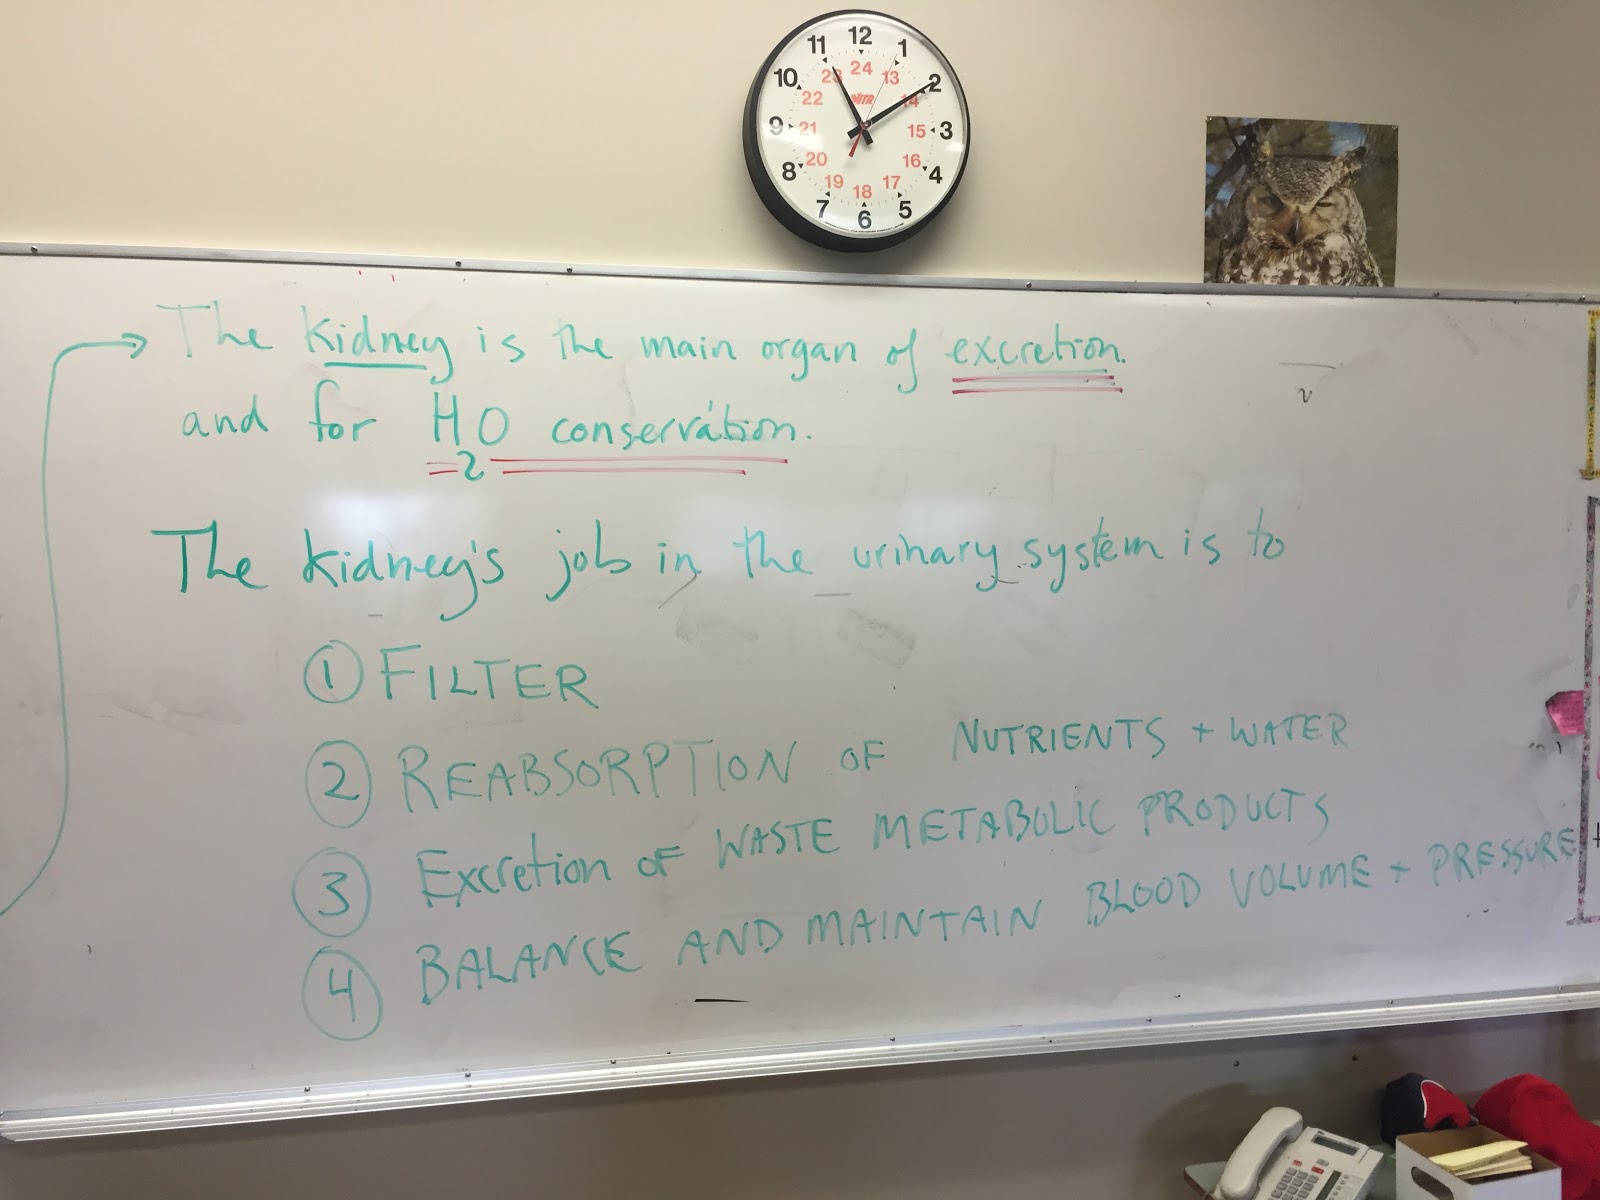 12
11 1
24
10 23 13 2
22 14
9 21 15 3
20 16
8 19 17 4
18
7 5
6
The kidney is the main organ of excretion.
and for H2O conservation.
The kidney's job in the urinary system is to
1 FILTER
2 REABSORPTION OF NUTRIENTS + WATER
3 Excretion OF WASTE METABOLIC PRODUCTS
4 BALANCE AND MAINTAIN BLOOD VOLUME + PRESSURE